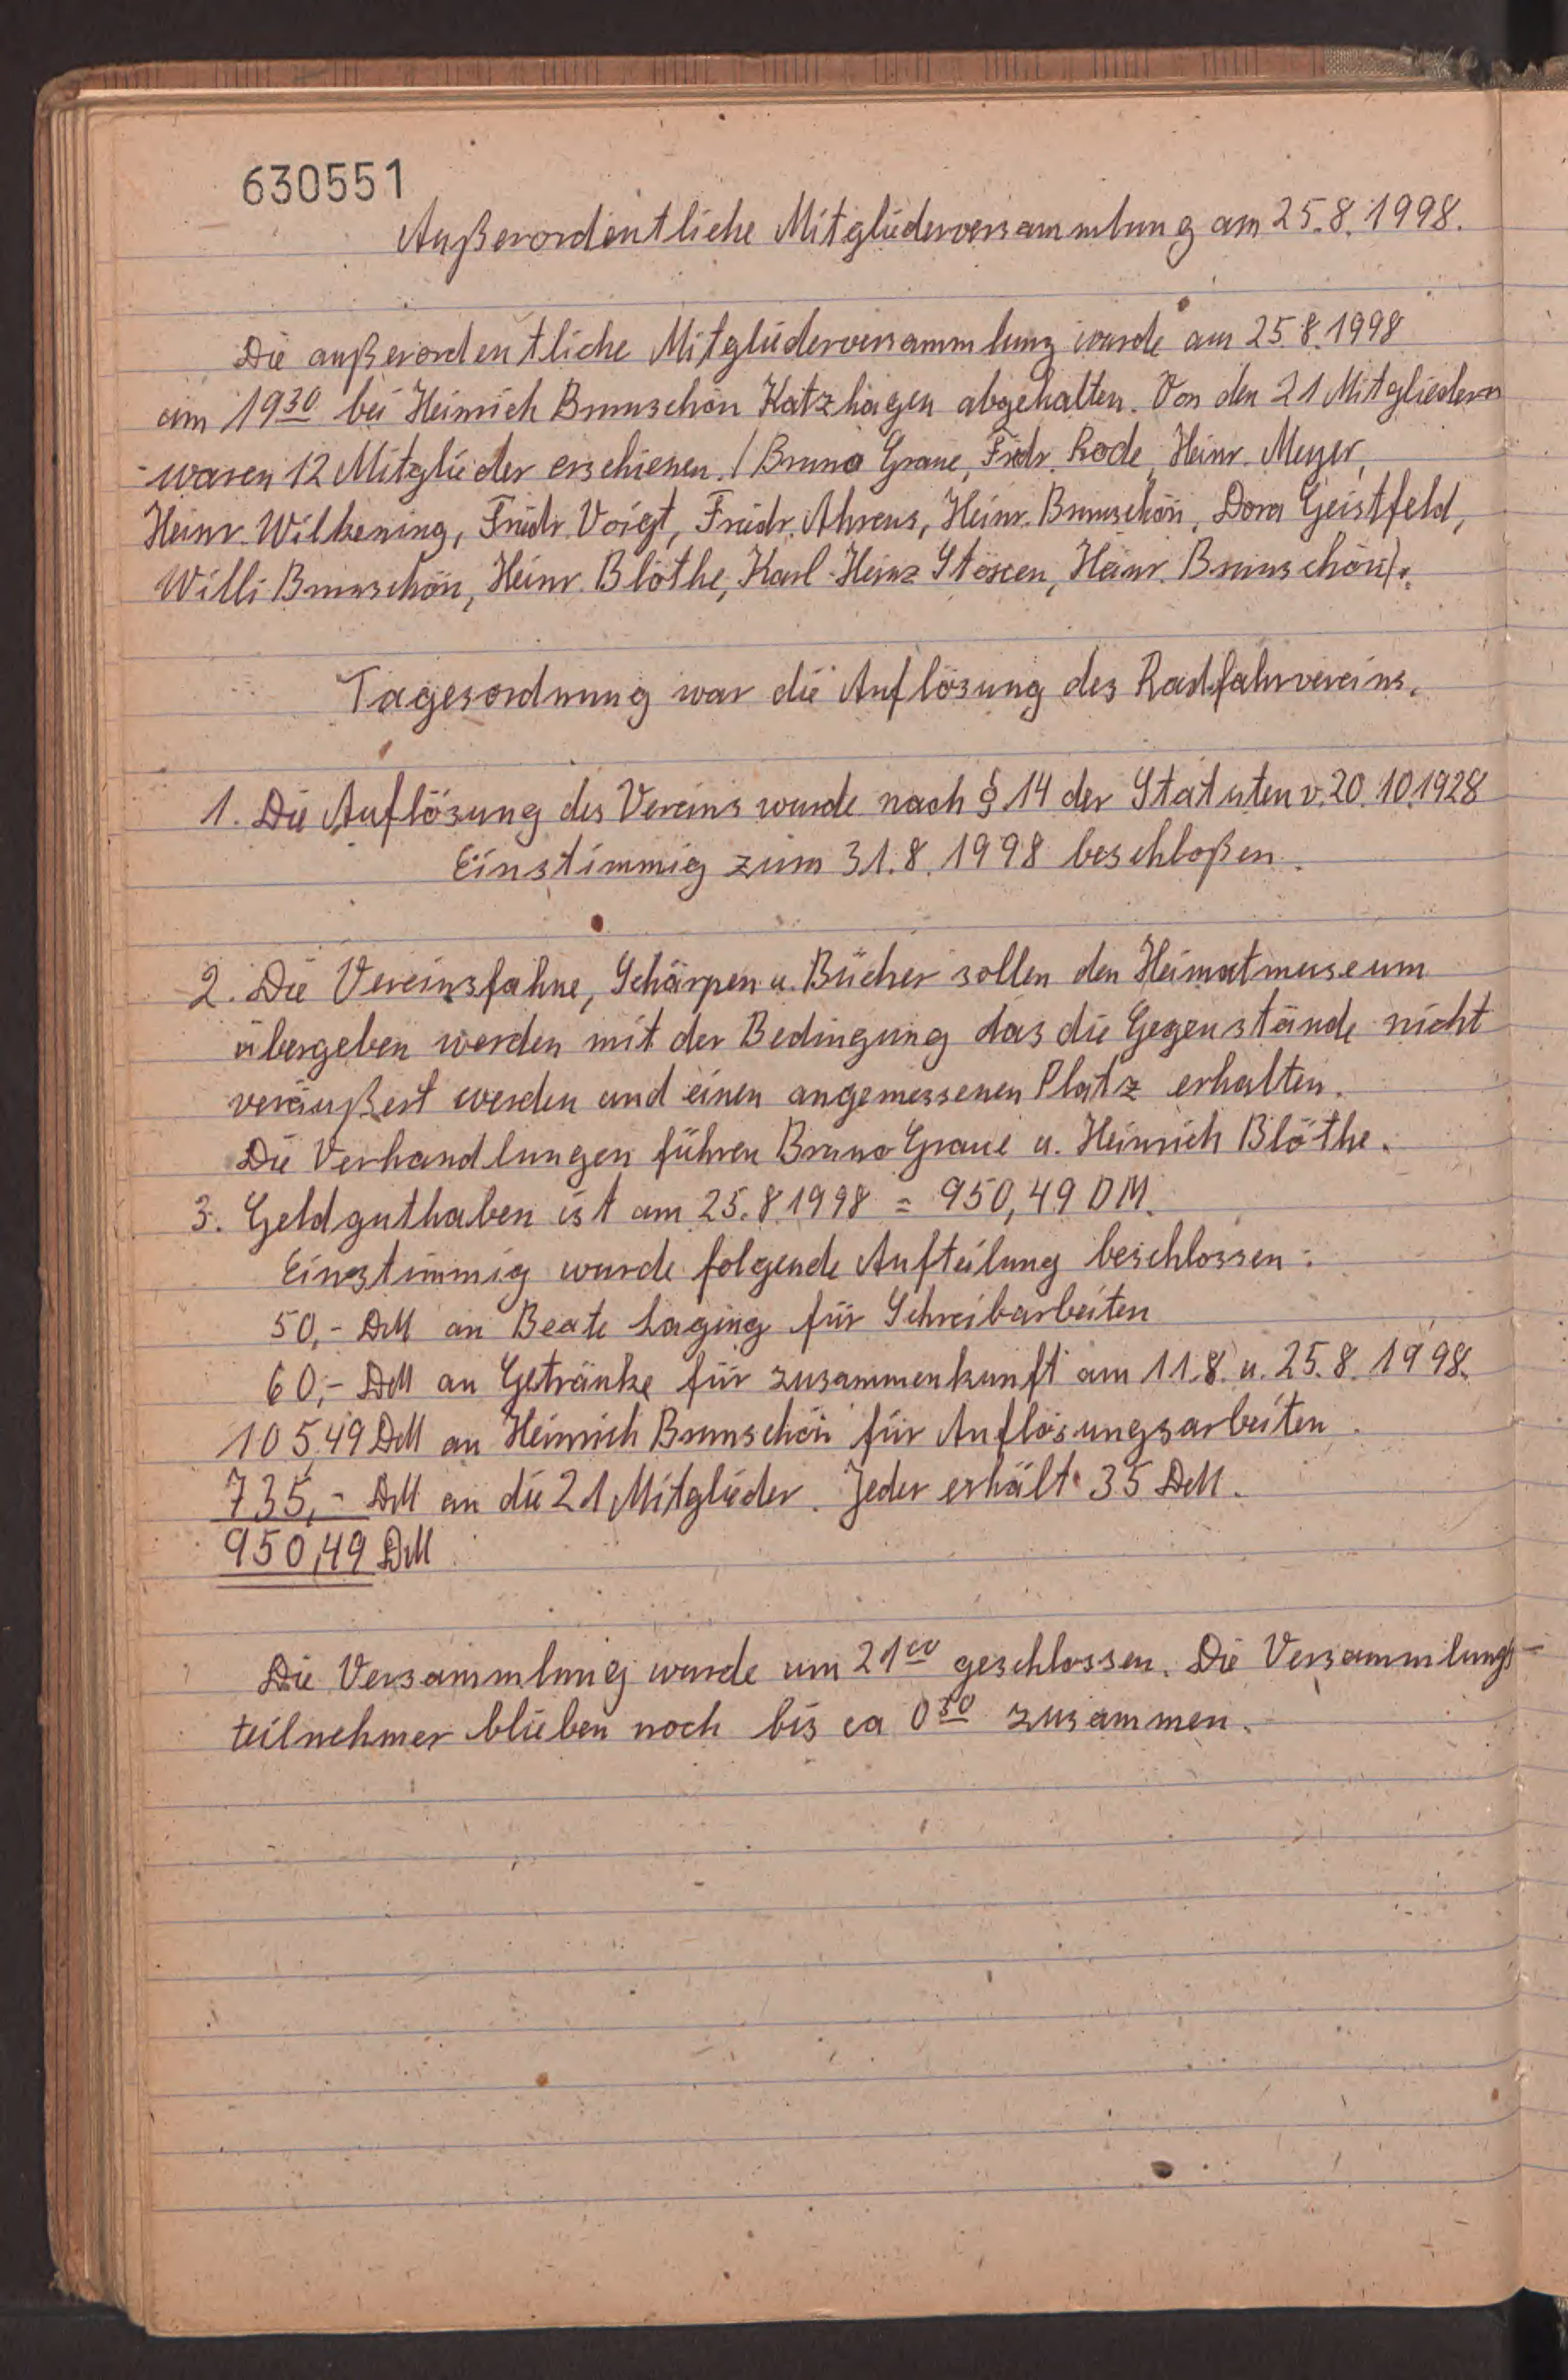 630551
Außerordentliche Mitgliederversammlung am 25.8.1998.
Die außerordentliche Mitgliederversammlung wurde am 25.8.1998
um 19³⁰ bei Heinrich Brunschön Katzhagen abgehalten. Von den 21 Mitgliedern
waren 12 Mitglieder erschienen. / Bruno Graue, Friedr. Rode, Heinr. Meyer,
Heinr. Wilkening, Friedr. Voigt, Friedr. Ahrens, Heinr. Brunschön, Dora Geistfeld,
Willi Brunschön, Heinr. Blöthe, Karl-Heinz Heinr. Brunschön/.
Tagesordnung war die Auflösung des Radfahrvereins.
1. Die Auflösung des Vereins wurde nach § 14 der Statuten v. 20.10.1928
Einstimmig zum 31.8.1998 beschloßen.
2. Die Vereinsfahne, Schärpen u. Bücher sollen den Heimatmuseum
übergeben werden mit der Bedingung das die Gegenstände nicht
veräußert werden und einen angemessenen Platz erhalten.
Die Verhandlungen führen Bruno Graue u. Heinrich Blöthe.
3. Geldguthaben ist am 25.8.1998 = 950,49 DM.
Einstimmig wurde folgende Aufteilung beschlossen:
50,- DM an Beate Laging für Schreibarbeiten
60,- DM an Getränke für zusammenkunft am 11.8. u. 25.8.1998.
105,49 DM an Heinrich Brunschön für Auflösungsarbeiten.
735,- DM an die 21 Mitglieder. Jeder erhält 35 DM.
950,49 DM
Die Versammlung wurde um 21⁰⁰ geschlossen. Die Versammlungs-
teilnehmer blieben noch bis ca 0³⁰ zusammen.